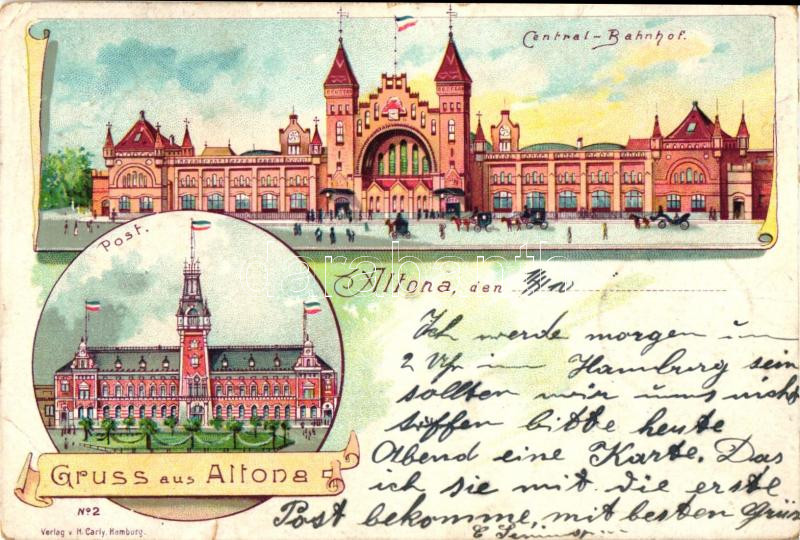 Central-Bahnhof.
Post.
Altona, den
Ich werde morgen um
2 Uhr in Hamburg sein
sollten wir uns nicht
treffen bitte heute
Abend eine Karte. Das
ich sie mit die erste
Post bekomme, mit besten Grüs
Gruss aus Altona
No 2
Verlag v. H. Carly, Hamburg.